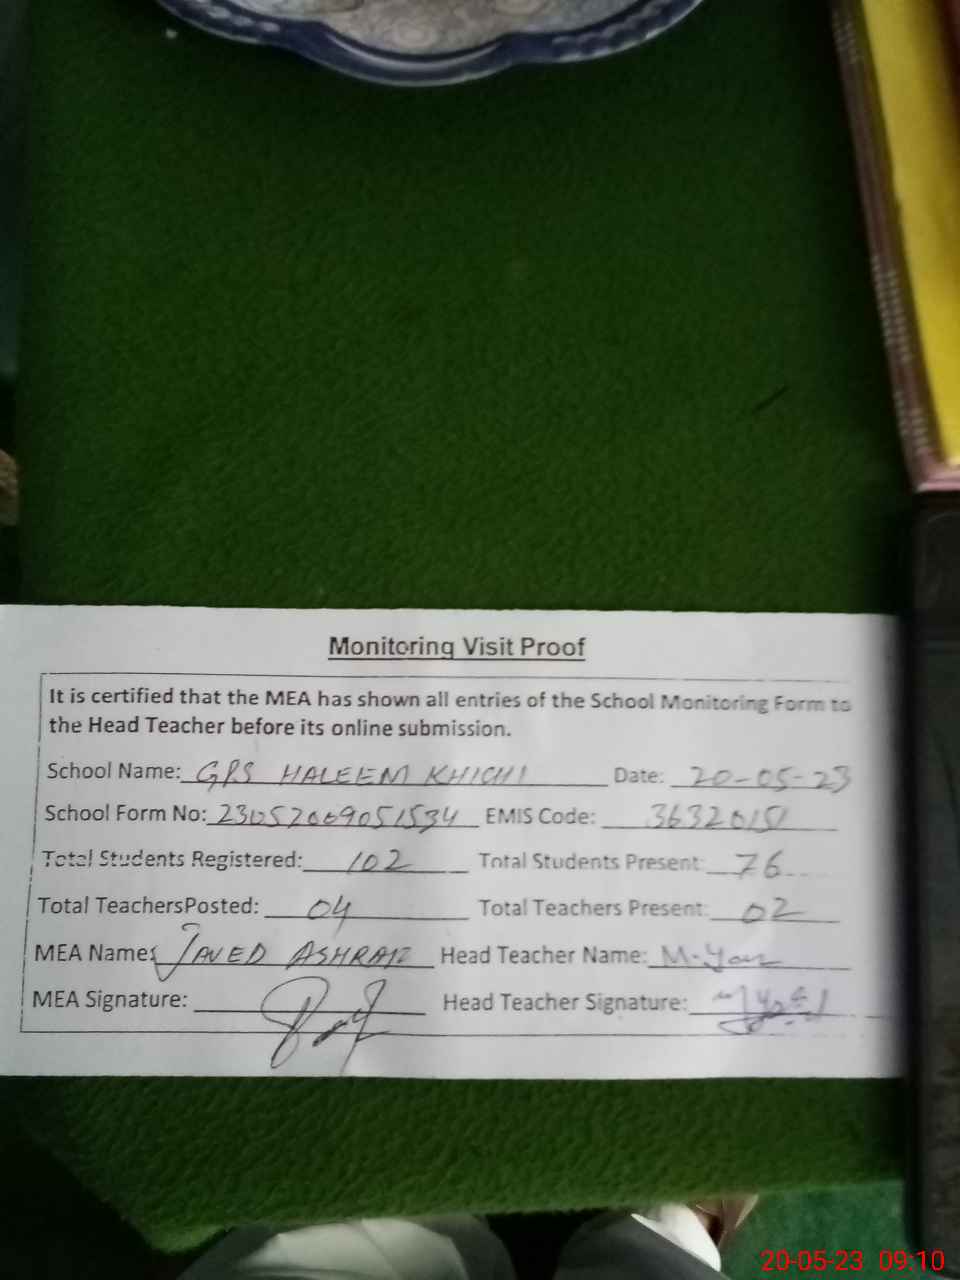 Monitoring Visit Proof
It is certified that the MEA has shown all entries of the School Monitoring Form to
the Head Teacher before its online submission.
School Name: GPS HALEEM KHICHI Date: 20-05-23
School Form No: 23052009051534 EMIS Code: 36320151
Total Students Registered: 102 Total Students Present: 76
Total TeachersPosted: 04 Total Teachers Present: 02
MEA Name: JAVED ASHRAF Head Teacher Name: M.
MEA Signature: Head Teacher Signature:
20-05-23 09:10